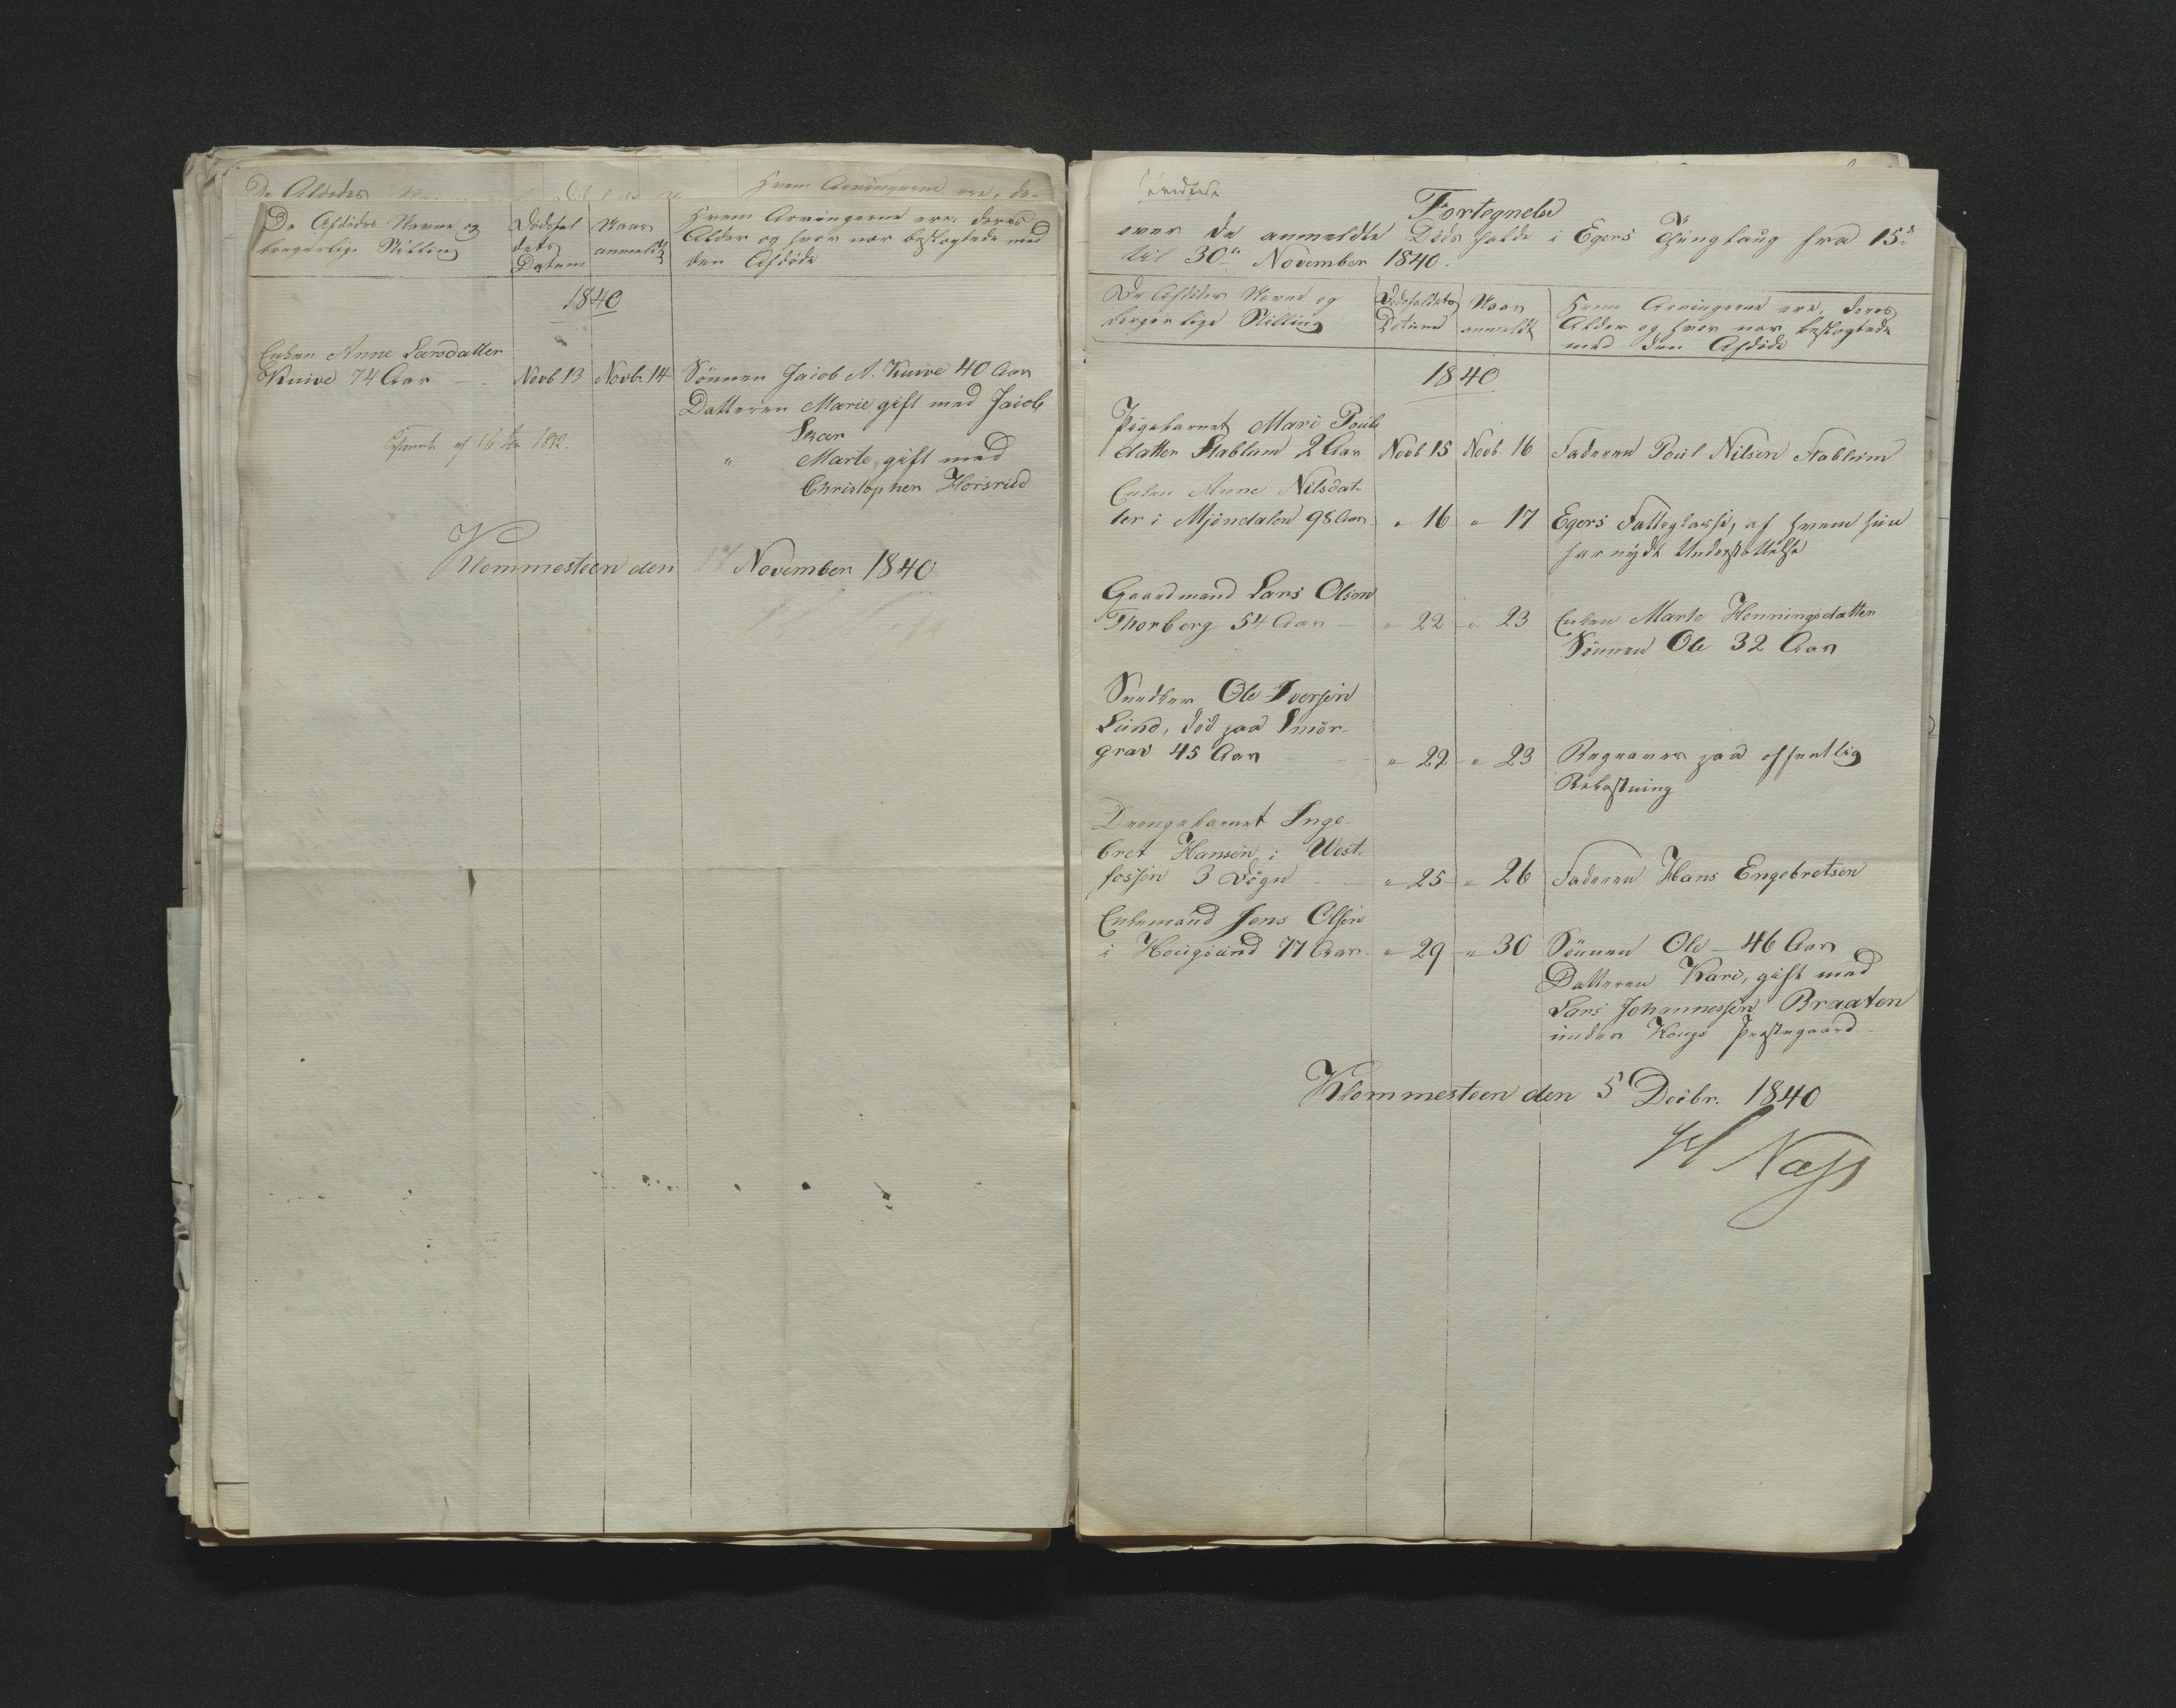 De Afdødes
Hvem Arvingerne ere, de-
De Afdødes Navne og
borgerlige Stilling
Dødsfal
dets
Datum
Naar
anmeldt
Hvem Arvingerne ere, deres
Alder og hvor nær beslægtede med
den Afdøde
1840
Enken Anne Larsdatter
Knive 74 Aar
Novb 13
Novb 14
Sønnen Jacob A. Knive 40 Aar
Datteren Marie gift med Jacob
Skar
" Marte, gift med
Christopher Horsrud
Klommesteen den 17 November 1840
Fortegnelse
over de anmeldte Dødsfalde i Egers Thinglaug fra 15de
til 30te November 1840.
De Afdødes Navne og
borgerlige Stilling
Dødsfaldets
Datum
Naar
anmeldt
Hvem Arvingerne ere, deres
Alder og hvor nær beslægtede
med den Afdøde
1840
Pigebarnet Mari Pouls
datter Stablum 2 Aar
Novb 15
Novb 16
Faderen Poul Nilsen Stablum
Enken Anne Nilsdat-
ter i Mjøndalen 98 Aar
" 16
" 17
Egers Fattigkasse, af hvem hun
har nydt Understøttelse
Gaardmand Lars Olsen
Thorberg 54 Aar
" 22
" 23
Enken Marte Henningsdatter
Sønnen Ole 32 Aar
Snedker Ole Iversen
Lund, død paa Smør-
grav 45 Aar
" 22
" 23
Begraves paa offentlig
Bekostning
Drengebarnet Inge-
bret Hansen i West-
fossen 3 Døgn
" 25
" 26
Faderen Hans Engebretsen
Enkemand Jens Olsen
i Hougsund 77 Aar
" 29
" 30
Sønnen Ole - 46 Aar
Datteren Kari, gift med
Lars Johannessen Braaten
under Hougs Præstegaard
Klommesteen den 5 Decbr. 1840
H Næss